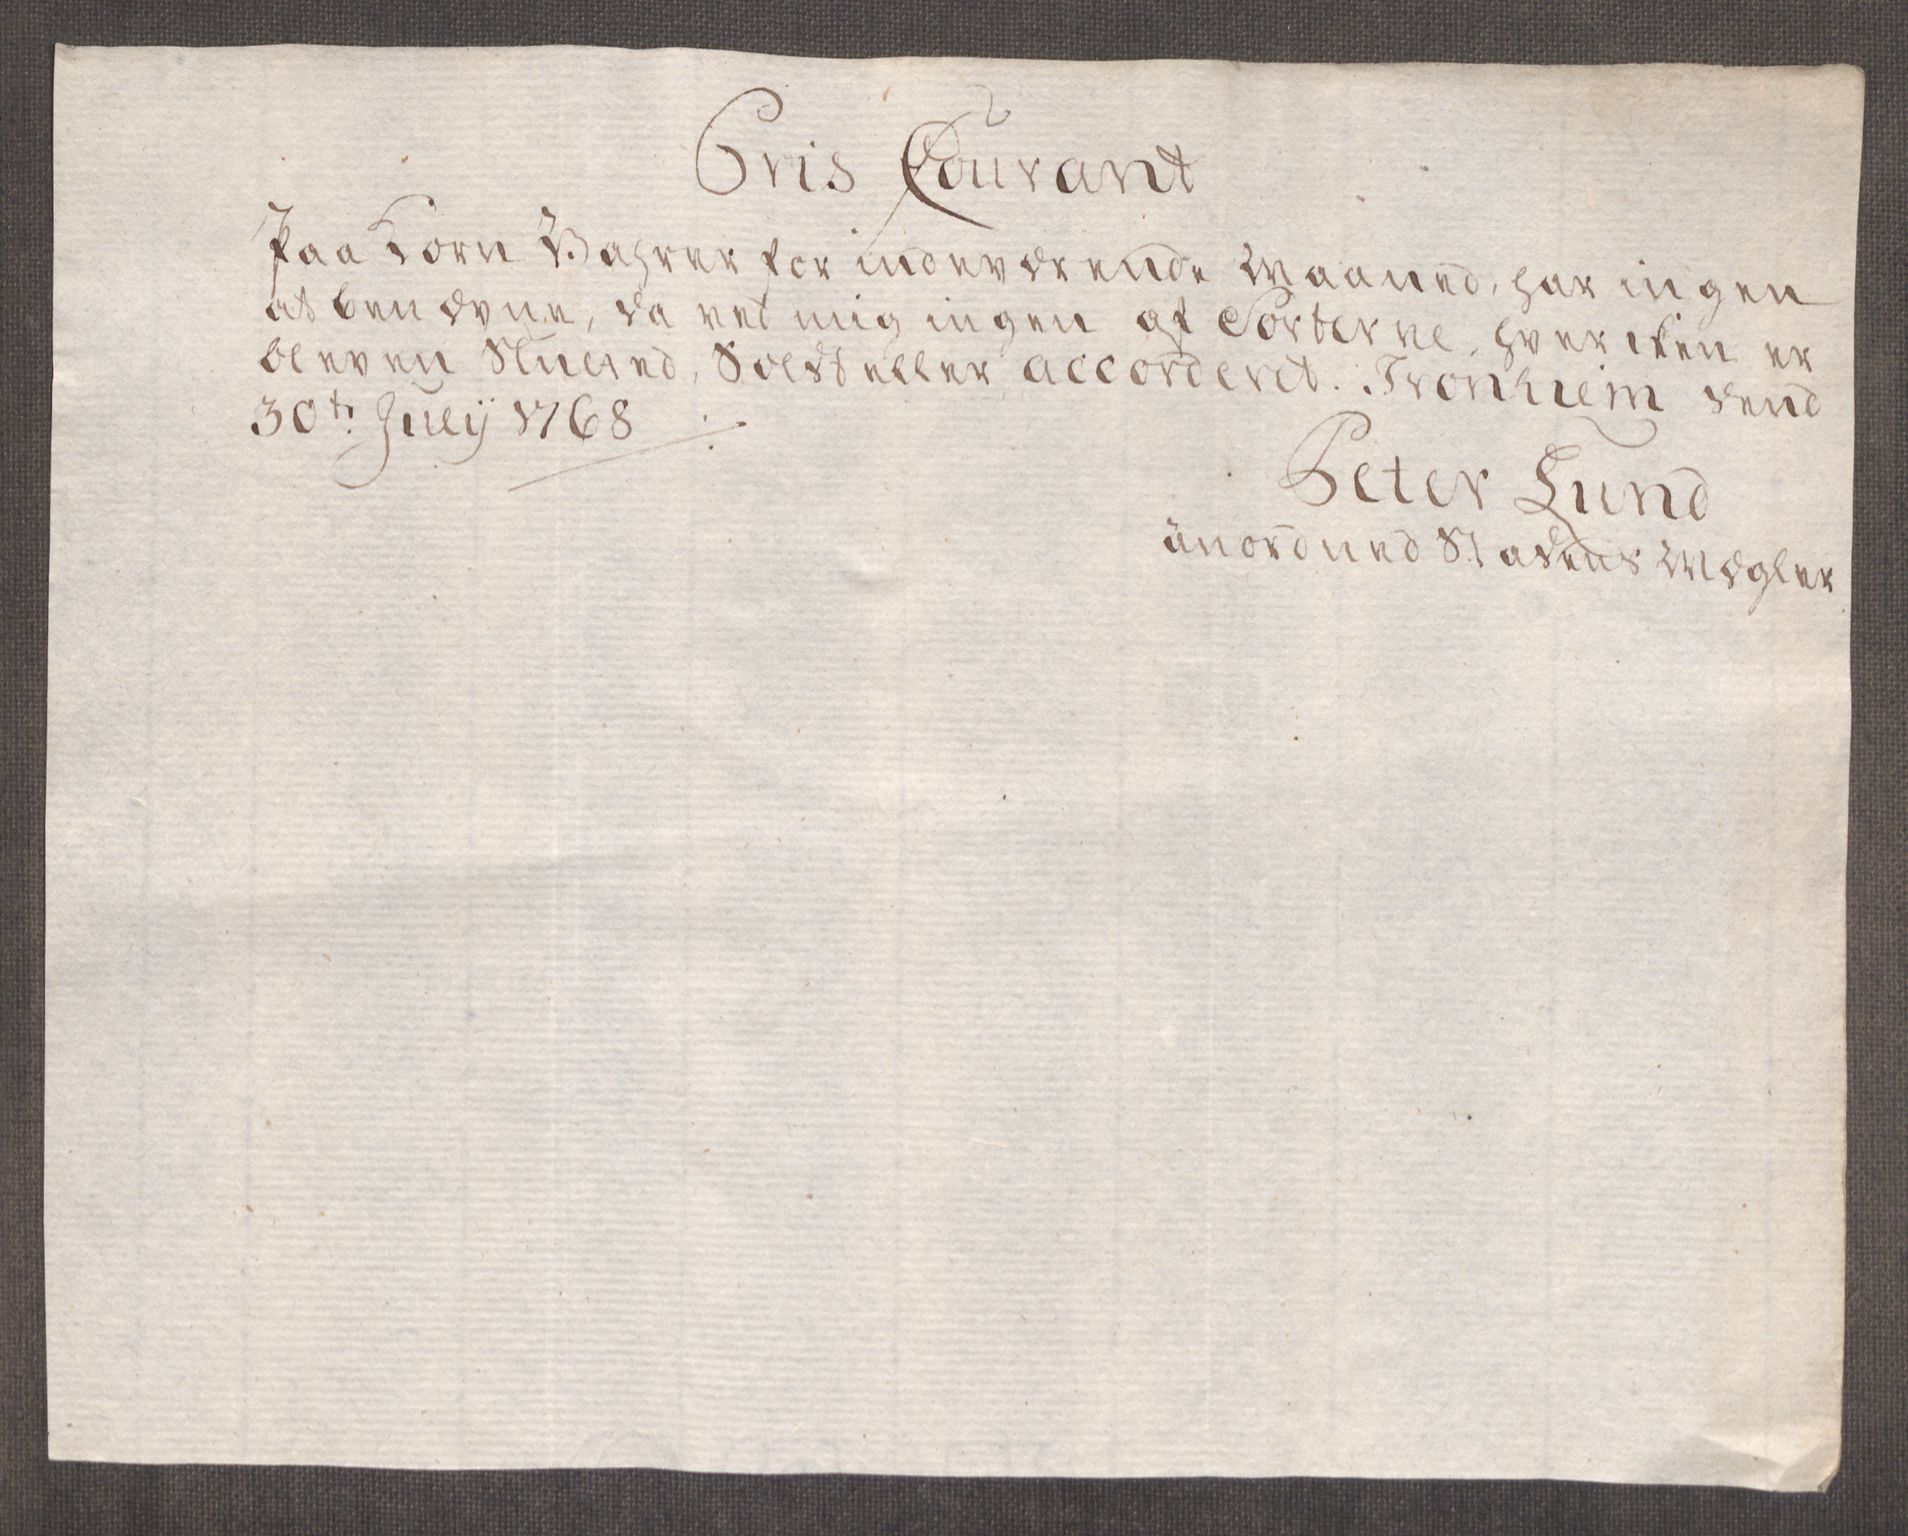 Pris Courant
Paa Korn Vahrer for indeværende Maaned, har ingen
at benævne, da ved mig ingen af Sorterne, hverchen er
bleven Sluted, Soldt eller accorderet. Tronhiem dend
30te July 1768
Peter Lund
anordned Stadens Mægler